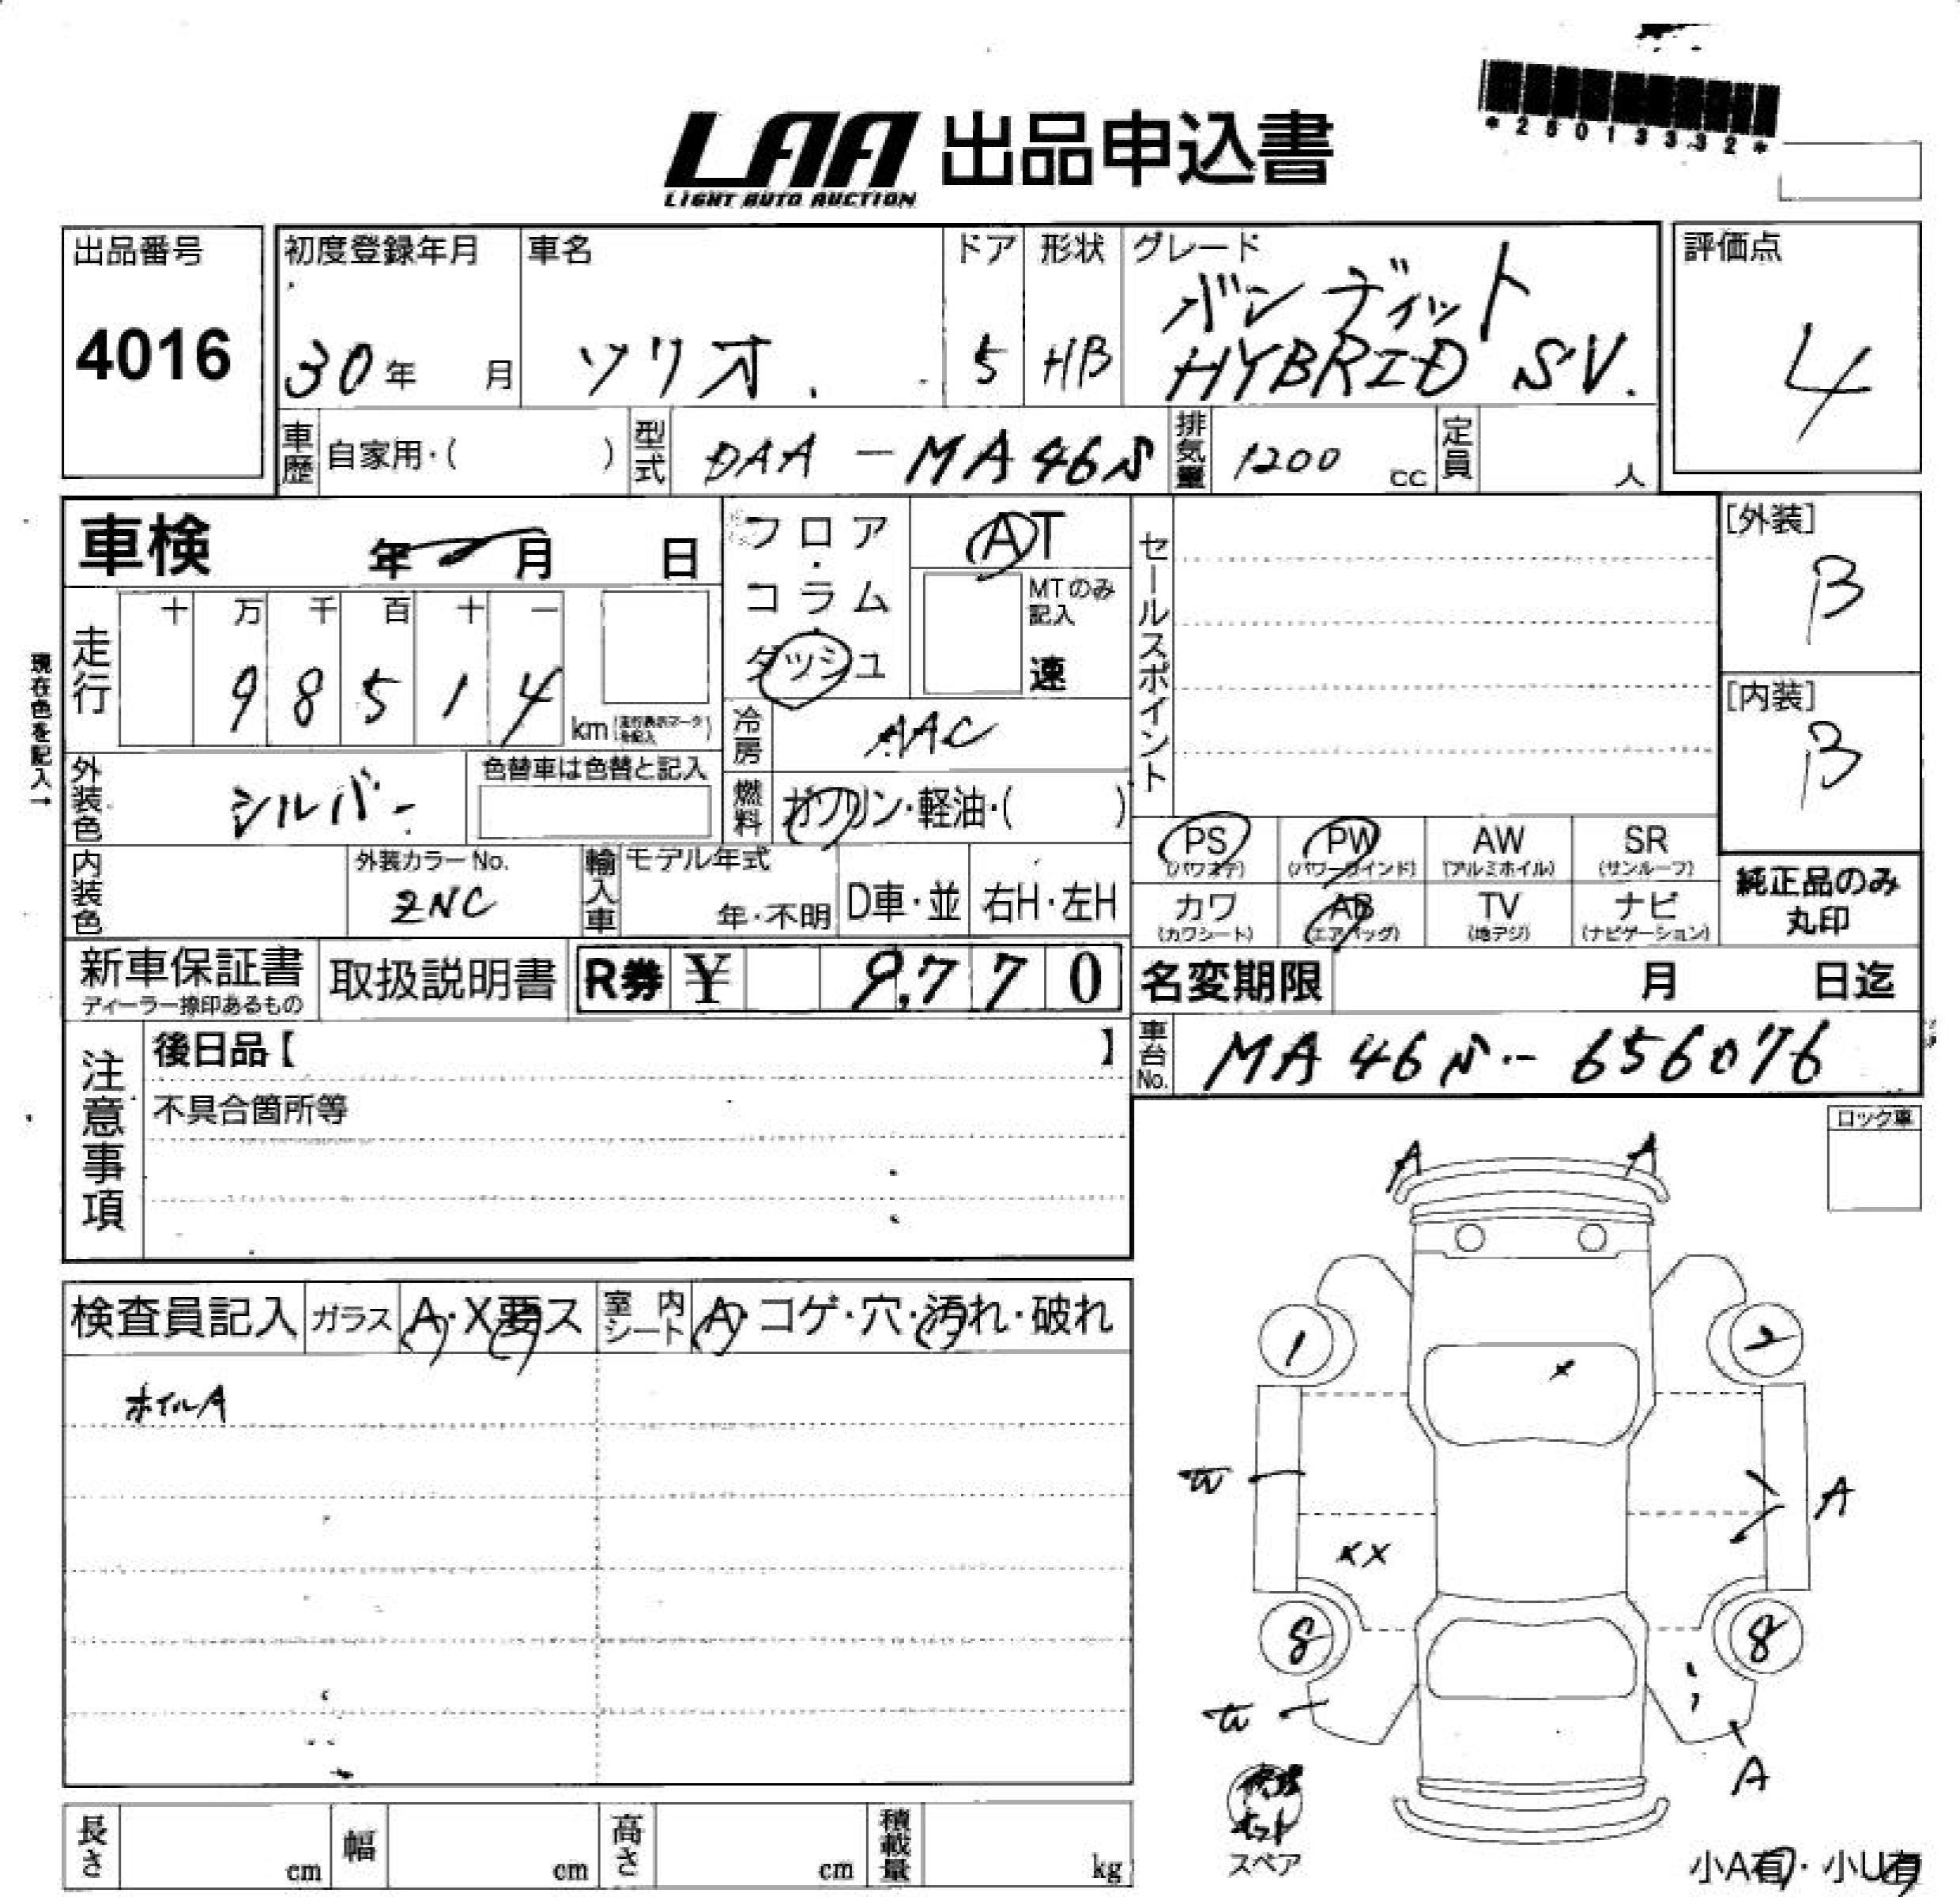 *26013332*
LAA 出品申込書
LIGHT AUTO AUCTION
出品番号 初度登録年月 車名 ドア 形状 グレード 評価点
バンディット
4016 30年 月 ソリオ 5 HB HYBRID SV. 4
車歴 自家用・( ) 型式 DAA-MA46S 排気量 1200 cc 定員 人
車検 年 月 日
フロア・コラム・ダッシュ
AT
MTのみ記入
速
セールスポイント
[外装]
B
[内装]
B
現在色を記入→
走行 十 万 千 百 十 一
9 8 5 1 4 km
冷房 AAC
外装色 シルバー 色替車は色替と記入
燃料 ガソリン・軽油・( )
PS PW AW SR
(パワステ) (パワーウインド) (アルミホイル) (サンルーフ)
カワ AB TV ナビ
(カワシート) (エアバッグ) (地デジ) (ナビゲーション)
純正品のみ
丸印
内装色 外装カラーNo. ZNC
輸入車 モデル年式 年・不明 D車・並 右H・左H
新車保証書 取扱説明書 R券 ¥ 9,770
ディーラー捺印あるもの
名変期限 月 日迄
車台No. MA46S-656076
注意事項
後日品【 】
不具合箇所等
ロック車
A A
検査員記入 ガラス A・X要ス 室内シート A・コゲ・穴・汚れ・破れ
ホイルA
1 2
X
A
XX
8 8
A
スペア
小A有・小U有
長さ cm 幅 cm 高さ cm 積載量 kg